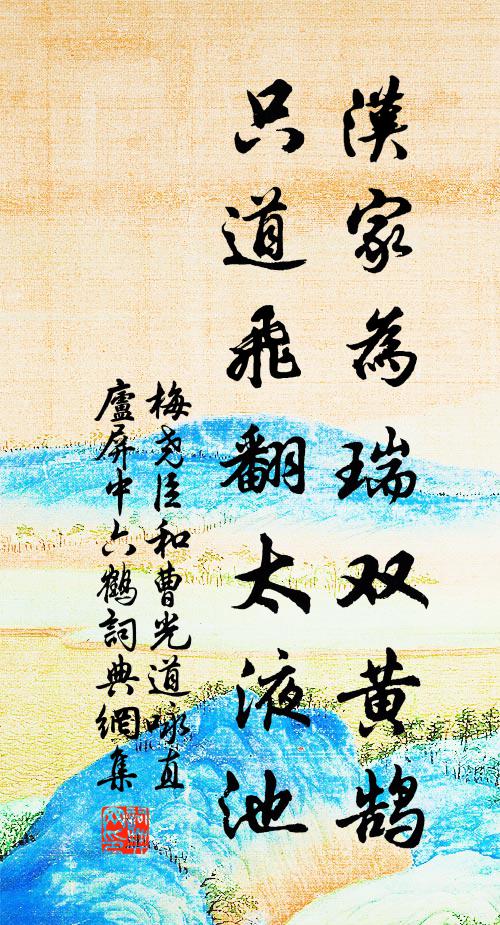 漢家為瑞双黄鹄
只道飛翻太液池
梅尧臣和曹光道咏直
廬屏中六鶴詞典網集